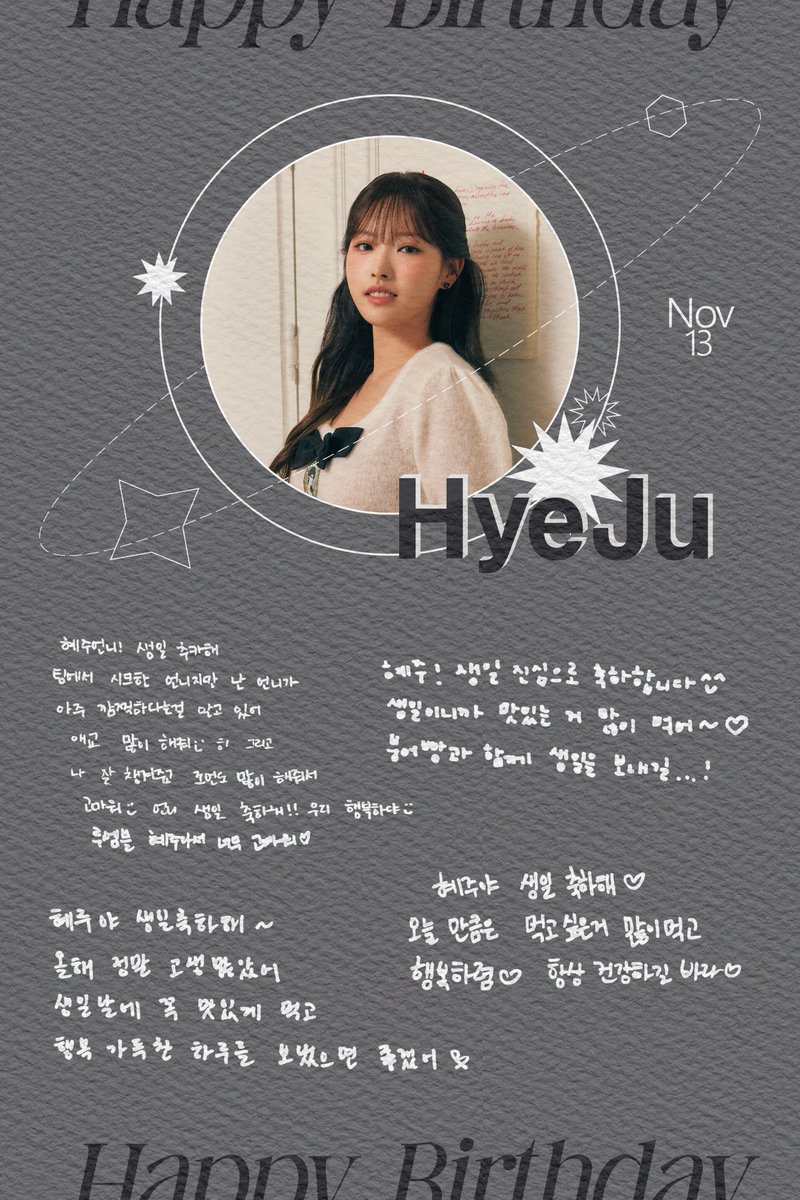 Happy Birthday
Nov
13
HyeJu
혜주언니! 생일 추카해
팀에서 시크한 언니지만 난 언니가
아주 깜찍하다는걸 알고 있어
애교 많이 해줘 히 그리고
나 잘 챙겨주고 조언도 많이 해줘서
고마워 언니 생일 축하해!! 우리 행복하자
루엄블 혜주라서 너무 고마워♡
혜주! 생일 진심으로 축하합니다^^
생일이니까 맛있는 거 많이 먹어~♡
붕어빵과 함께 생일을 보내길...!
혜주야 생일축하해~
올해 정말 고생 많았어
생일날에 꼭 맛있게 먹고
행복 가득한 하루를 보냈으면 좋겠어
혜주야 생일 축하해♡
오늘 만큼은 먹고싶은거 많이먹고
행복하렴♡ 항상 건강하길 바라♡
Happy Birthday